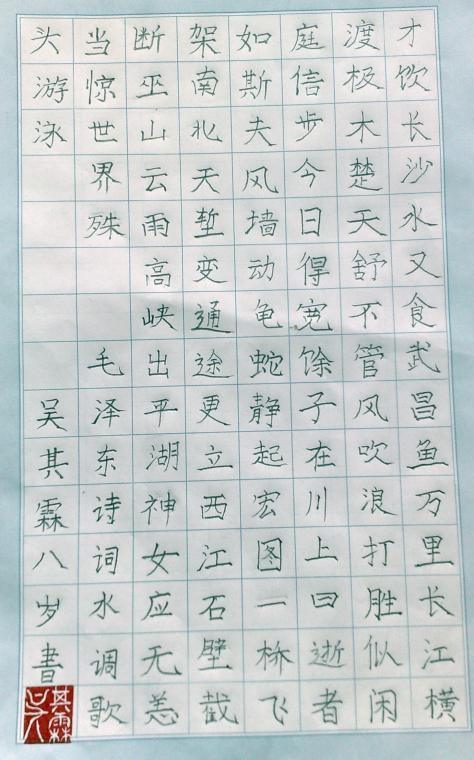 才饮长沙水又食武昌鱼万里长江横
渡极木楚天舒不管风吹浪打胜似闲
庭信步今日得宽馀子在川上曰逝者
如斯夫风墙动龟蛇静起宏图一桥飞
架南北天堑变通途更立西江石壁截
断巫山云雨高峡出平湖神女应无恙
当惊世界殊 毛泽东诗词水调歌
头游泳 吴其霖八岁书
其霖